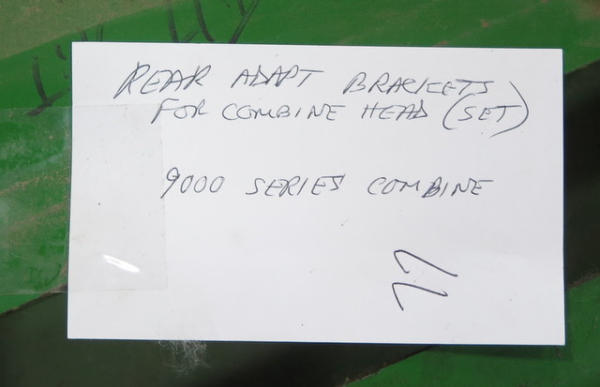 REAR ADAPT BRACKETS
FOR COMBINE HEAD (SET)
9000 SERIES COMBINE
77